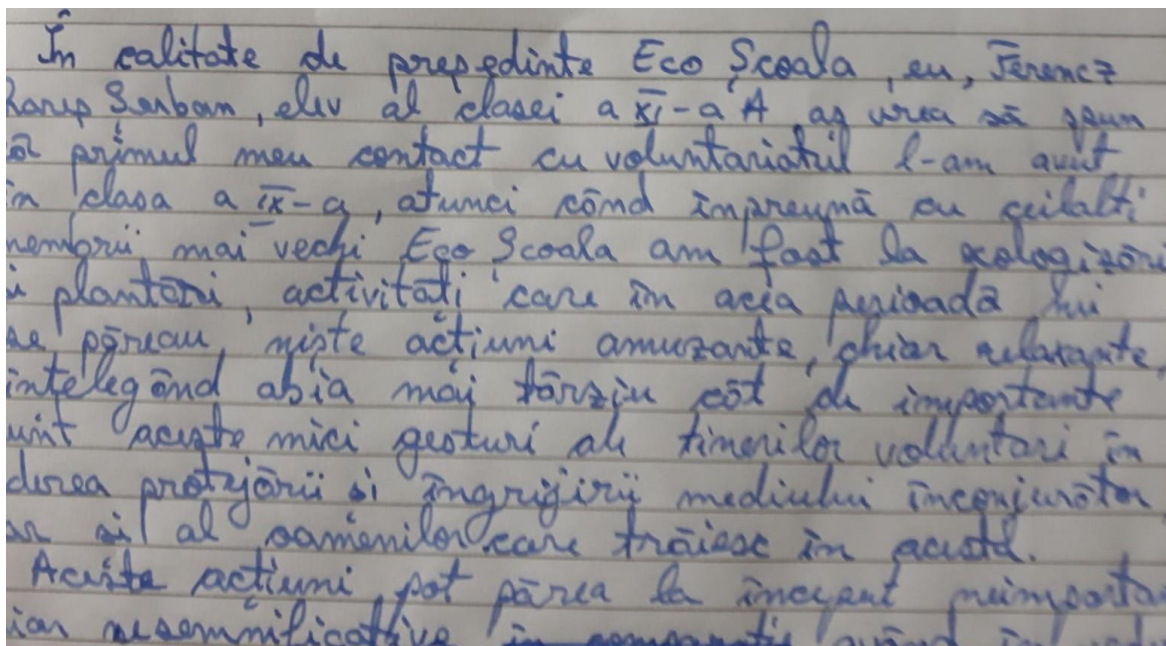 În calitate de președinte Eco Școala, eu, Ferencz
Rareș Șerban, elev al clasei a XI-a A aș vrea să spun
că primul meu contact cu voluntariatul l-am avut
în clasa a IX-a, atunci când împreună cu ceilalți
membrii mai vechi Eco Școala am fost la ecologizări
și plantări, activități care în acea perioadă îmi
se păreau niște acțiuni amuzante, chiar relaxante,
înțelegând abia mai târziu cât de importante
sunt aceste mici gesturi ale tinerilor voluntari în
vederea protejării și îngrijirii mediului înconjurător
dar și al oamenilor care trăiesc în acesta.
Aceste acțiuni pot părea la început
nesemnificative în